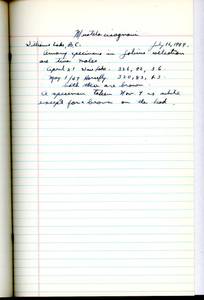 Mustela cicognani
Williams Lake, B.C. July 16, 1949.
Among specimens in Jobins' collection
are two males
April 21 Lake. 326, 82, 5.6.
May 1/47 Horsefly 320, 83, 4.5.
both these are brown.
A specimen taken Nov. 9 is white
except for brown on the head.